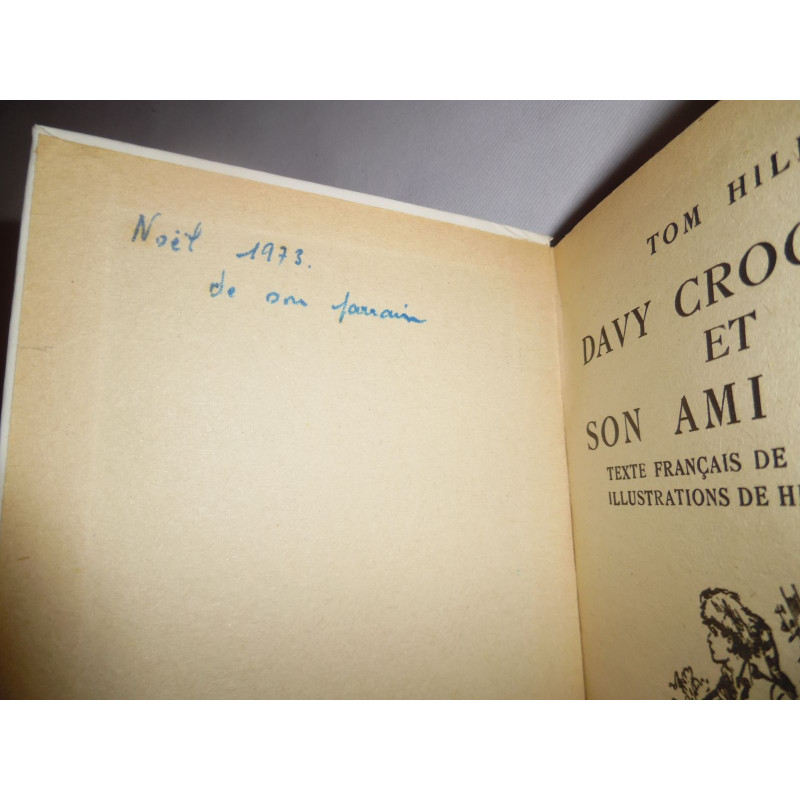 Noël 1973.
de son parrain
TOM HIL
DAVY CROC
ET
SON AMI
TEXTE FRANÇAIS DE
ILLUSTRATIONS DE H